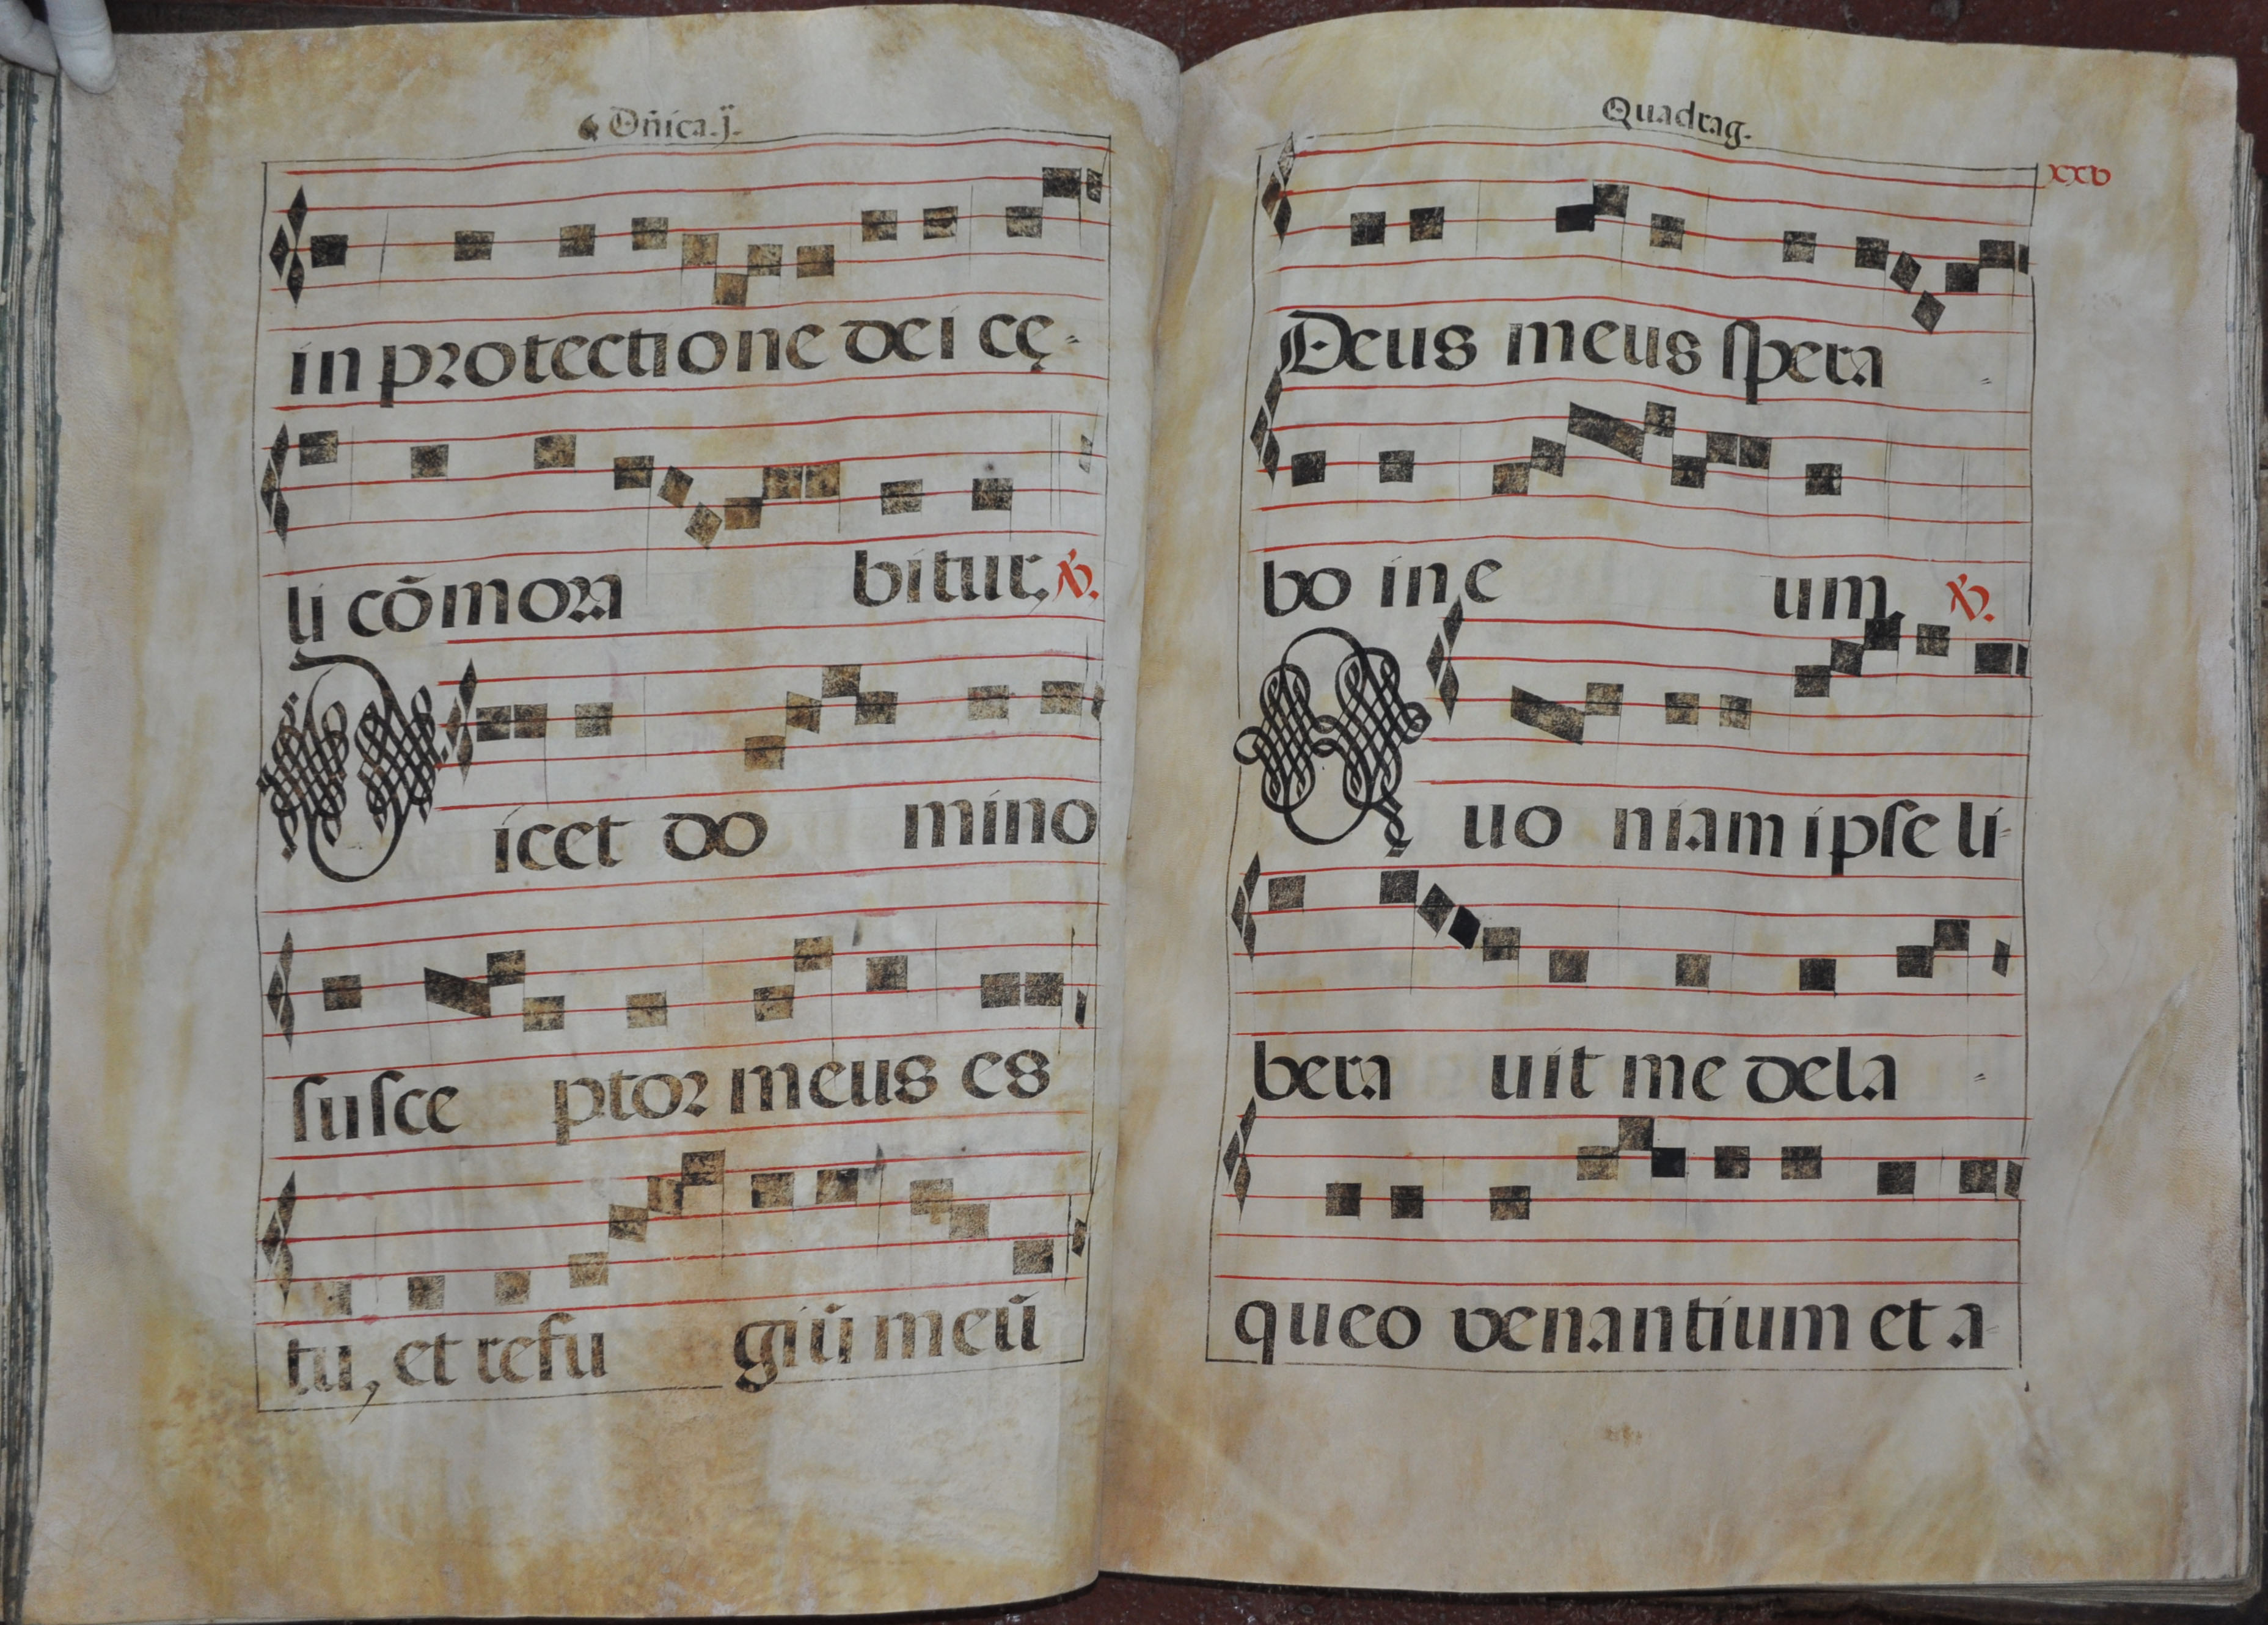 Dñica.j.
in protectione dei cę-
li cõmora bitur, ℟.
Dicet do mino
ſuſce ptor meus es
tu, et refu giũ meũ
Quadrag.
xxv
Deus meus ſpera
bo in e um, ℟.
Quo niam ipſe li-
bera uit me dela-
queo venantium et a-